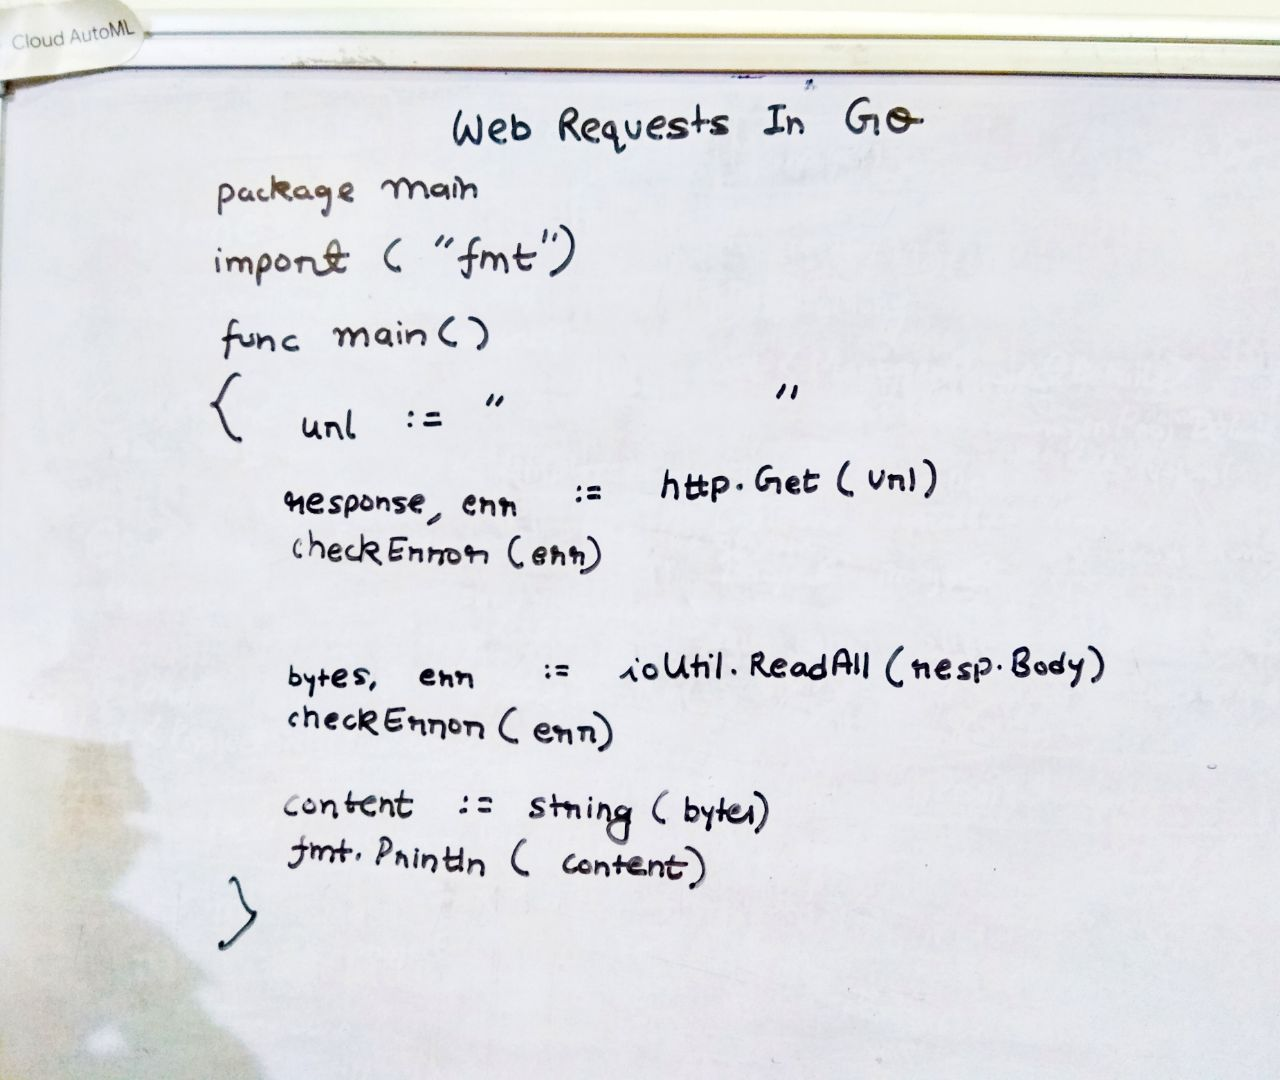 Cloud AutoML
Web Requests In Go
package main
import ( "fmt")
func main()
{ url := " "
response, err := http.Get ( url)
checkError (err)
bytes, err := ioUtil.ReadAll (resp.Body)
checkError ( err)
content := string ( bytes)
fmt.Println ( content)
}